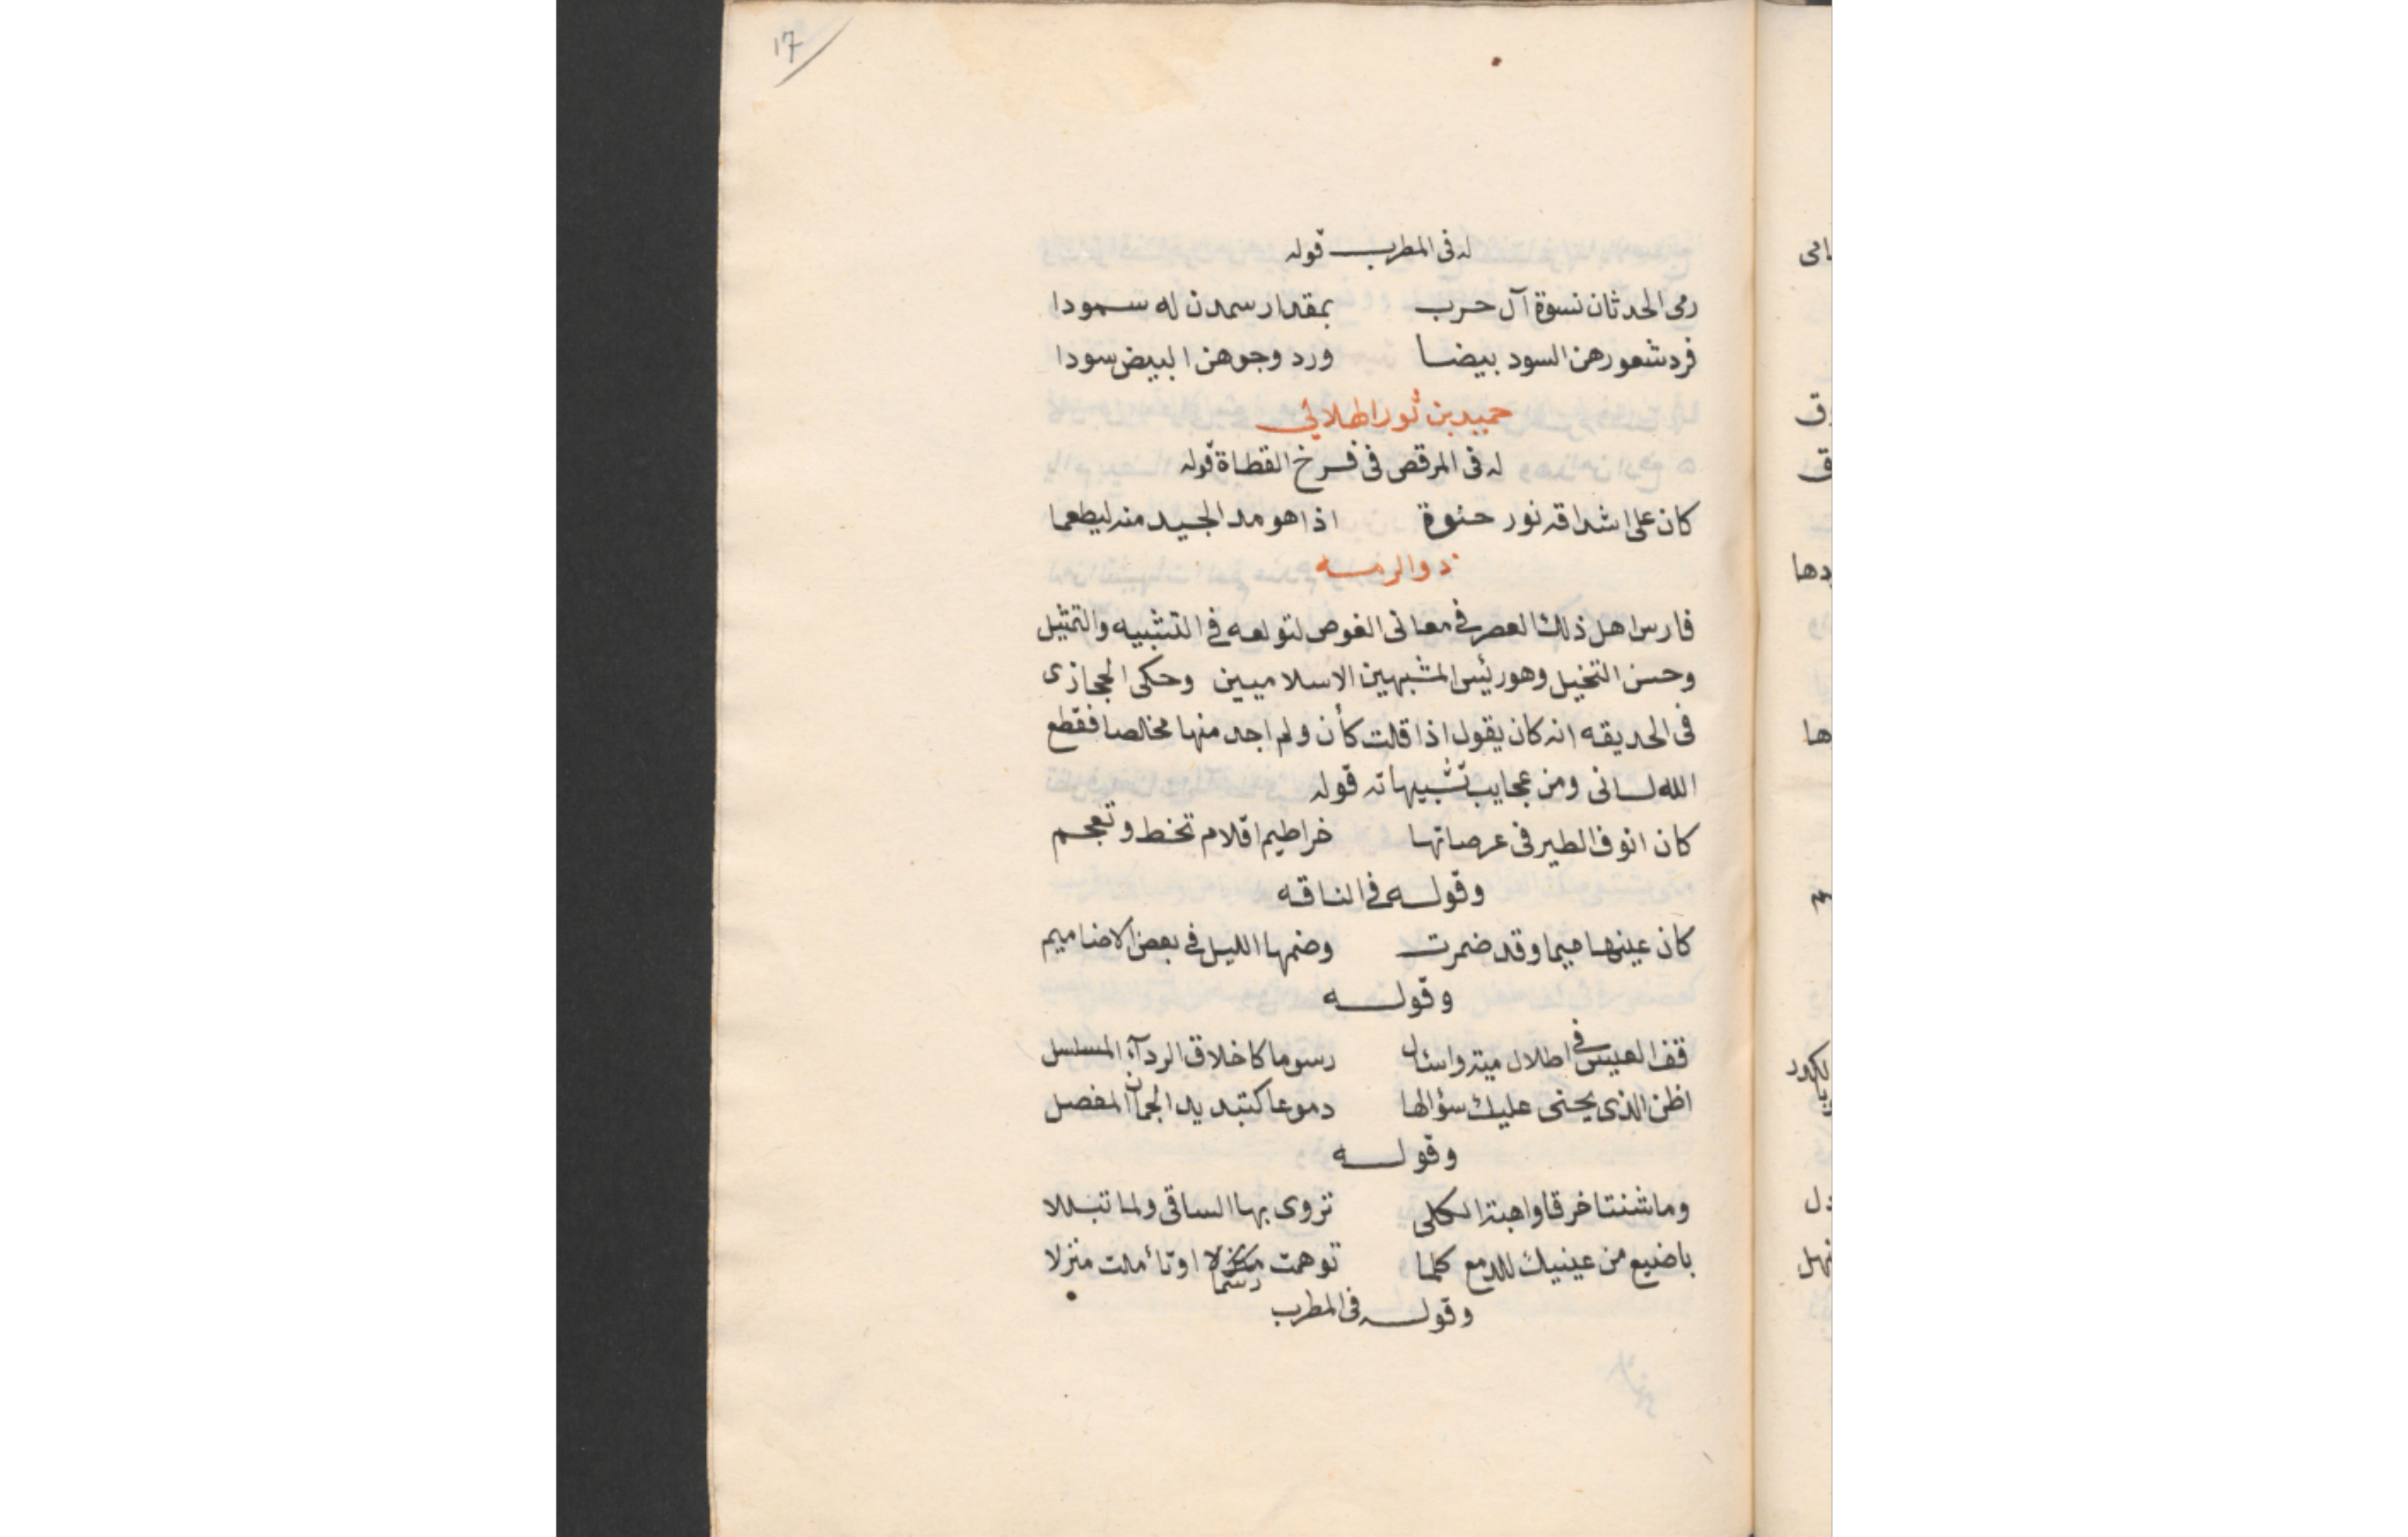 17
له في المطرب قوله
رمى الحدثان نسوة آل حرب بمقدار سمدن له سمودا
فرد شعورهن السود بيضا ورد وجوههن البيض سودا
حميد بن ثور الهلالي
له في المرقص في فرخ القطاة قوله
كان على اشداقه نور حنوة اذا هو مد الجيد منه ليطعما
ذو الرمه
فارس اهل ذلك العصر في معانى الغوص لتولعه في التشبيه والتمثيل
وحسن التخيل وهو رئيس المشبهين الاسلاميين وحكى الحجازى
فى الحديقه انه كان يقول اذا قلت كأن ولم اجد منها مخالصا فقطع
الله لسانى ومن عجايب تشبيهاته قوله
كان انوف الطير فى عرصاتها خراطيم اقلام تخط وتعجم
وقوله في الناقه
كان عينها ميما وقد ضمرت وضمها الليل في بعض الاضاميم
وقوله
قف العيس في اطلال مية واسئال رسوما كاخلاق الردآء المسلسل
اظن الذى يجنى عليك سؤالها دموعا كتبديد الجمان المفصل
وقوله
وما شنتا خرقا واهبة الكلى تروى بها الساقى ولما تبللا
باضيع من عينيك للدمع كلما توهمت رسما او تأملت منزلا
وقوله فى المطرب